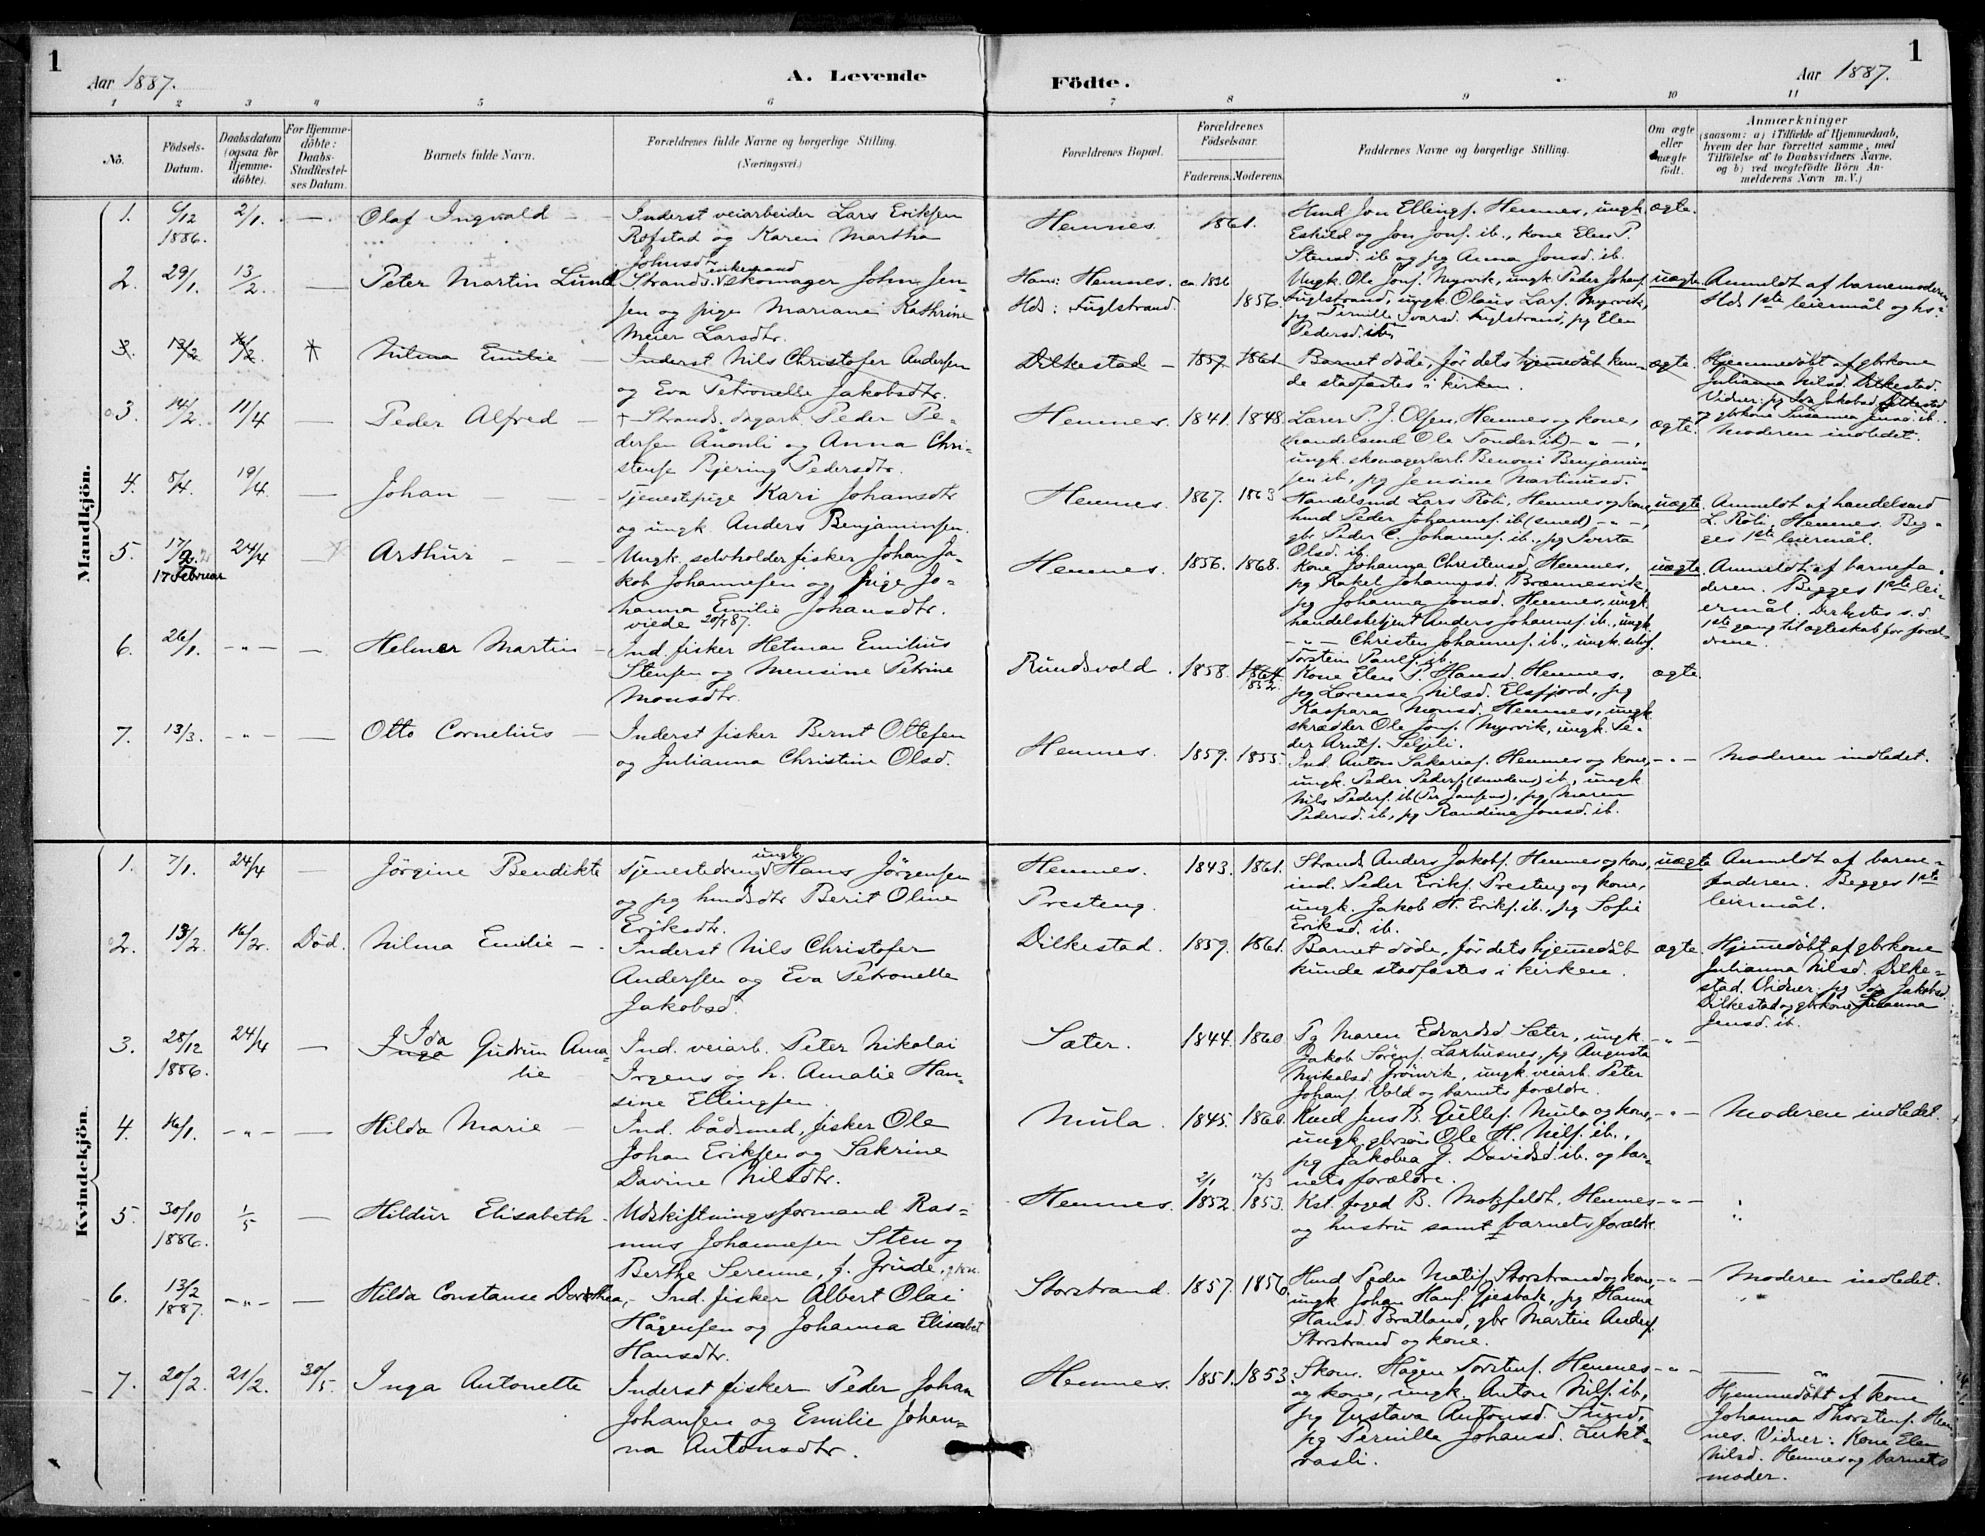 1
Aar 1887.
A. Levende
Födte.
Aar 1887.
1
1 2 3 4 5 6 7 8 9 10 11
No.
Födsels-
Datum.
Daabsdatum
(ogsaa for
Hjemme-
döbte).
For Hjemme-
döbte:
Daabs-
Stadfæstel-
ses Datum.
Barnets fulde Navn.
Forældrenes fulde Navne og borgerlige Stilling.
(Næringsvei.)
Forældrenes Bopæl.
Forældrenes
Födselsaar.
Faderens.
Moderens.
Faddernes Navne og borgerlige Stilling.
Om ægte
eller
uægte
födt.
Anmærkninger
(saasom: a) i Tilfælde af Hjemmedaab,
hvem der har forrettet samme, med
Tilföielse af to Daabsvidners Navne,
og b) ved uægtefödte Börn An-
melderens Navn m. V.)
Mandkjön.
1. 6/12 1886. 2/1. — Olaf Ingvald
Inderst veiarbeider Lars Eriksen
Rofstad og Karen Martha
Johnsdtr.
Hemnes. 1861.
Hmd Jon Ellingf. Hemnes, ungk.
Eskild og Jon Jonf. ib., kone Elen P.
Stensd. ib og pg Anna Jonsd. ib.
ægte.
2. 29/1. 13/2. — Peter Martin Lund
Strands. enkemand skomager John Jen-
sen og pige Mariane Kathrine
Meier Larsdtr.
Hans: Hemnes. ca 1826
Hds: Fuglstrand. 1856.
Ungk. Ole Jonf. Myrvik, ungk. Peder Johanf.
Fuglstrand, ungk. Olaus Larsf. Myrvik,
pg Pernille Ivarsd. Fuglstrand, pg Elen
Pedersd. ibm
uægte.
Anmeldt af barnemoderen.
Hds 1ste leiermål og hs.
3. 13/2 16/2. Nilma Emilie —
Inderst Nils Christofer Andersen
og Eva Petronelle Jakobsdtr.
Dilkestad — 1859 1861
Barnet döde, för dets hjemmedåb kun-
de stadfæstes i kirken.
ægte.
Hjemmedöbt af gbrkone
Julianna Nilsd. Dilkestad.
Vidner: pg Eva Jakobsd. Dilkestad
gbrkone Susanna Jensd. ib.
3. 14/2. 11/4 — Peder Alfred —
+ Strands. dagarb. Peder Pe-
dersen Åonli og Anna Chri-
stense Bjering Pedersdtr.
Hemnes. 1841. 1848.
Lærer P. J. Olsen, Hemnes og kone,
(handelsmd Ole Tonder ib) — " —,
ungk. skomagerlærl. Benoni Benjamin-
sen ib, pg Jensine Martinusd.
ægte.
Moderen indledet.
4. 8/4. 19/4 — Johan
Tjenestepige Kari Johansdtr
og ungk. Anders Benjaminsen.
Hemnes. 1867. 1863
Handelsmd Lars Röli, Hemnes og kone,
hmd Peder Johannef. ib. (smed) — " —,
gbr. Peder C. Johannef. ib., pg Sverta
Olsd. ib.
uægte.
Anmeldt af handelsmd
L. Röli, Hemnes. Beg-
ges 1ste leiermål.
5. 17/2. 17 Februar 24/4 — Arthur
Ungk. selvholder fisker Johan Ja-
kob Johannesen og pige Jo-
hanna Emilie Johansdtr.
viede 20/5 87.
Hemnes. 1856. 1868.
Kone Johanna Christensd. Hemnes,
pg Rakel Johannesd. Brænnesvik,
pg Johanna Jonsd. Hemnes, ungk.
handelsbetjent Anders Johannef. ib., ungk.
— " — Christen Johannef. ib., ungk. selvf.
Torstein Paulf. ib.
uægte.
Anmeldt af barnefa-
deren. Begges 1ste lei-
ermål. Dirkstes s.d.
1ste gang til ægteskab for foræl-
drene.
6. 26/1. — " — — Helmer Martin —
Ind. fisker Hetman Emilius
Stensen og Mensine Petrine
Monsdtr.
Rundsvold. 1858. 1864 1852.
Kone Elen P. Hansd. Hemnes,
pg Lorense Nilsd. Elsfjord, pg
Kaspara Monsd. Hemnes, ungk.
skrædder Ole Jonf. Myrvik, ungk. Pe-
der Arntf. Seljeli.
ægte.
7. 13/3. — " — — Otto Cornelius —
Inderst fisker Bernt Ottesen
og Julianna Christine Olsd.
Hemnes. 1859. 1855.
Ind. Anton Sakariaf. Hemnes og kone,
ungk. Peder Pederf. (smedens) ib., ungk.
Nils Pederf. ib (Per Jansens), pg Maren
Pedersd. ib., pg Randine Jonsd. ib.
— " — Moderen indledet.
Kvindekjön.
1. 7/1. 24/4 — Jörgine Bendikte
Tjenestedreng ungk. Hans Jörgensen
og pg hmdsdtr Berit Oline
Eriksdtr.
Hemnes. 1843. 1861.
Presteng.
Strands. Anders Jakobf. Hemnes og kone,
ind. Peder Erikf. Presteng og kone,
ungk. Jakob H. Erikf. ib., pg Sofie
Eriksd. ib.
uægte
Anmeldt af barne-
faderen. Begges 1ste
leiermål.
2. 13/2. 16/2. Död. Nilma Emilie —
Inderst Nils Christofer
Andersen og Eva Petronelle
Jakobsd.
Dilkestad. 1859. 1861.
Barnet döde, för dets hjemmedåb
kunde stadfæstes i kirken.
ægte.
Hjemmedöbt af gbrkone
Julianna Nilsd. Dilke-
stad. Vidner: pg Eva Jakobsd.
Dilkestad og gbrkone Susanna
Jensd. ib.
3. 28/12 1886. 24/4 — Inga Ida Gudrun Ama-
lie
Ind. veiarb. Peter Nikolai
Irgens og h. Amalie Han-
sine Ellingsen.
Sæter. 1844. 1860.
Pg Maren Edvardsd Sæter, ungk.
Jakob Sörenf. Laxhusnes, pg Augusta
Mikalsd. Jröinvik, ungk. veiarb. Peter
Johanf. Vold og barnets forældre.
— " —
4. 16/1. — " — — Hilda Marie —
Ind. bådsmed, fisker Ole
Johan Eriksen og Sakrine
Davine Nilsdtr.
Mula. 1845. 1860.
Kmd Jens B. Gullef. Mula og kone,
ungk. gbrsön Ole H. Nilf. ib.,
pg Jakobea J. Davidsd. ib. og bar-
nets forældre.
— " — Moderen indledet.
5. 30/10 1886. 1/5 — Hildur Elisabeth.
Udskiftningsformand Ras-
mus Johannesen Sten og
Berthe Serenne, f. Grude.
Hemnes. 2/1 1852. 12/3 1853.
Kst. foged B. Motzfeldt, Hemnes
og hustru samt barnets forældre.
— " —
6. 13/2 1887. — " — — Hilda Constanse Dorthea,
Ind. fisker Albert Olai
Hågensen og Johanna Elisabet
Hansdtr.
Storstrand. 1857. 1856.
Hmd Peder Matif. Storstrand og kone,
ungk Johan Hanf. Gjesbak, pg Hanna
Hansd. Bratland, gbr Martin Anderf.
Storstrand og kone.
— " — Moderen indledet.
7. 20/2. 21/2. 30/5. Inga Antonette
Inderst fisker Peder Johan
Johansen og Emilie Johan-
na Antonsdtr.
Hemnes. 1851. 1853.
Skom. Hågen Torstenf. Hemnes
og kone, ungk. Anton Nilf. ib,
pg Gustava Antonsd. Sund,
pg Pernille Johansd. Lukt-
vasli.
— " —
Hjemmedöbt af kone
Johanna Thorstenf. Hem-
nes. Vidner: Kone Elen
Nilsd. Hemnes og barnets
moder.